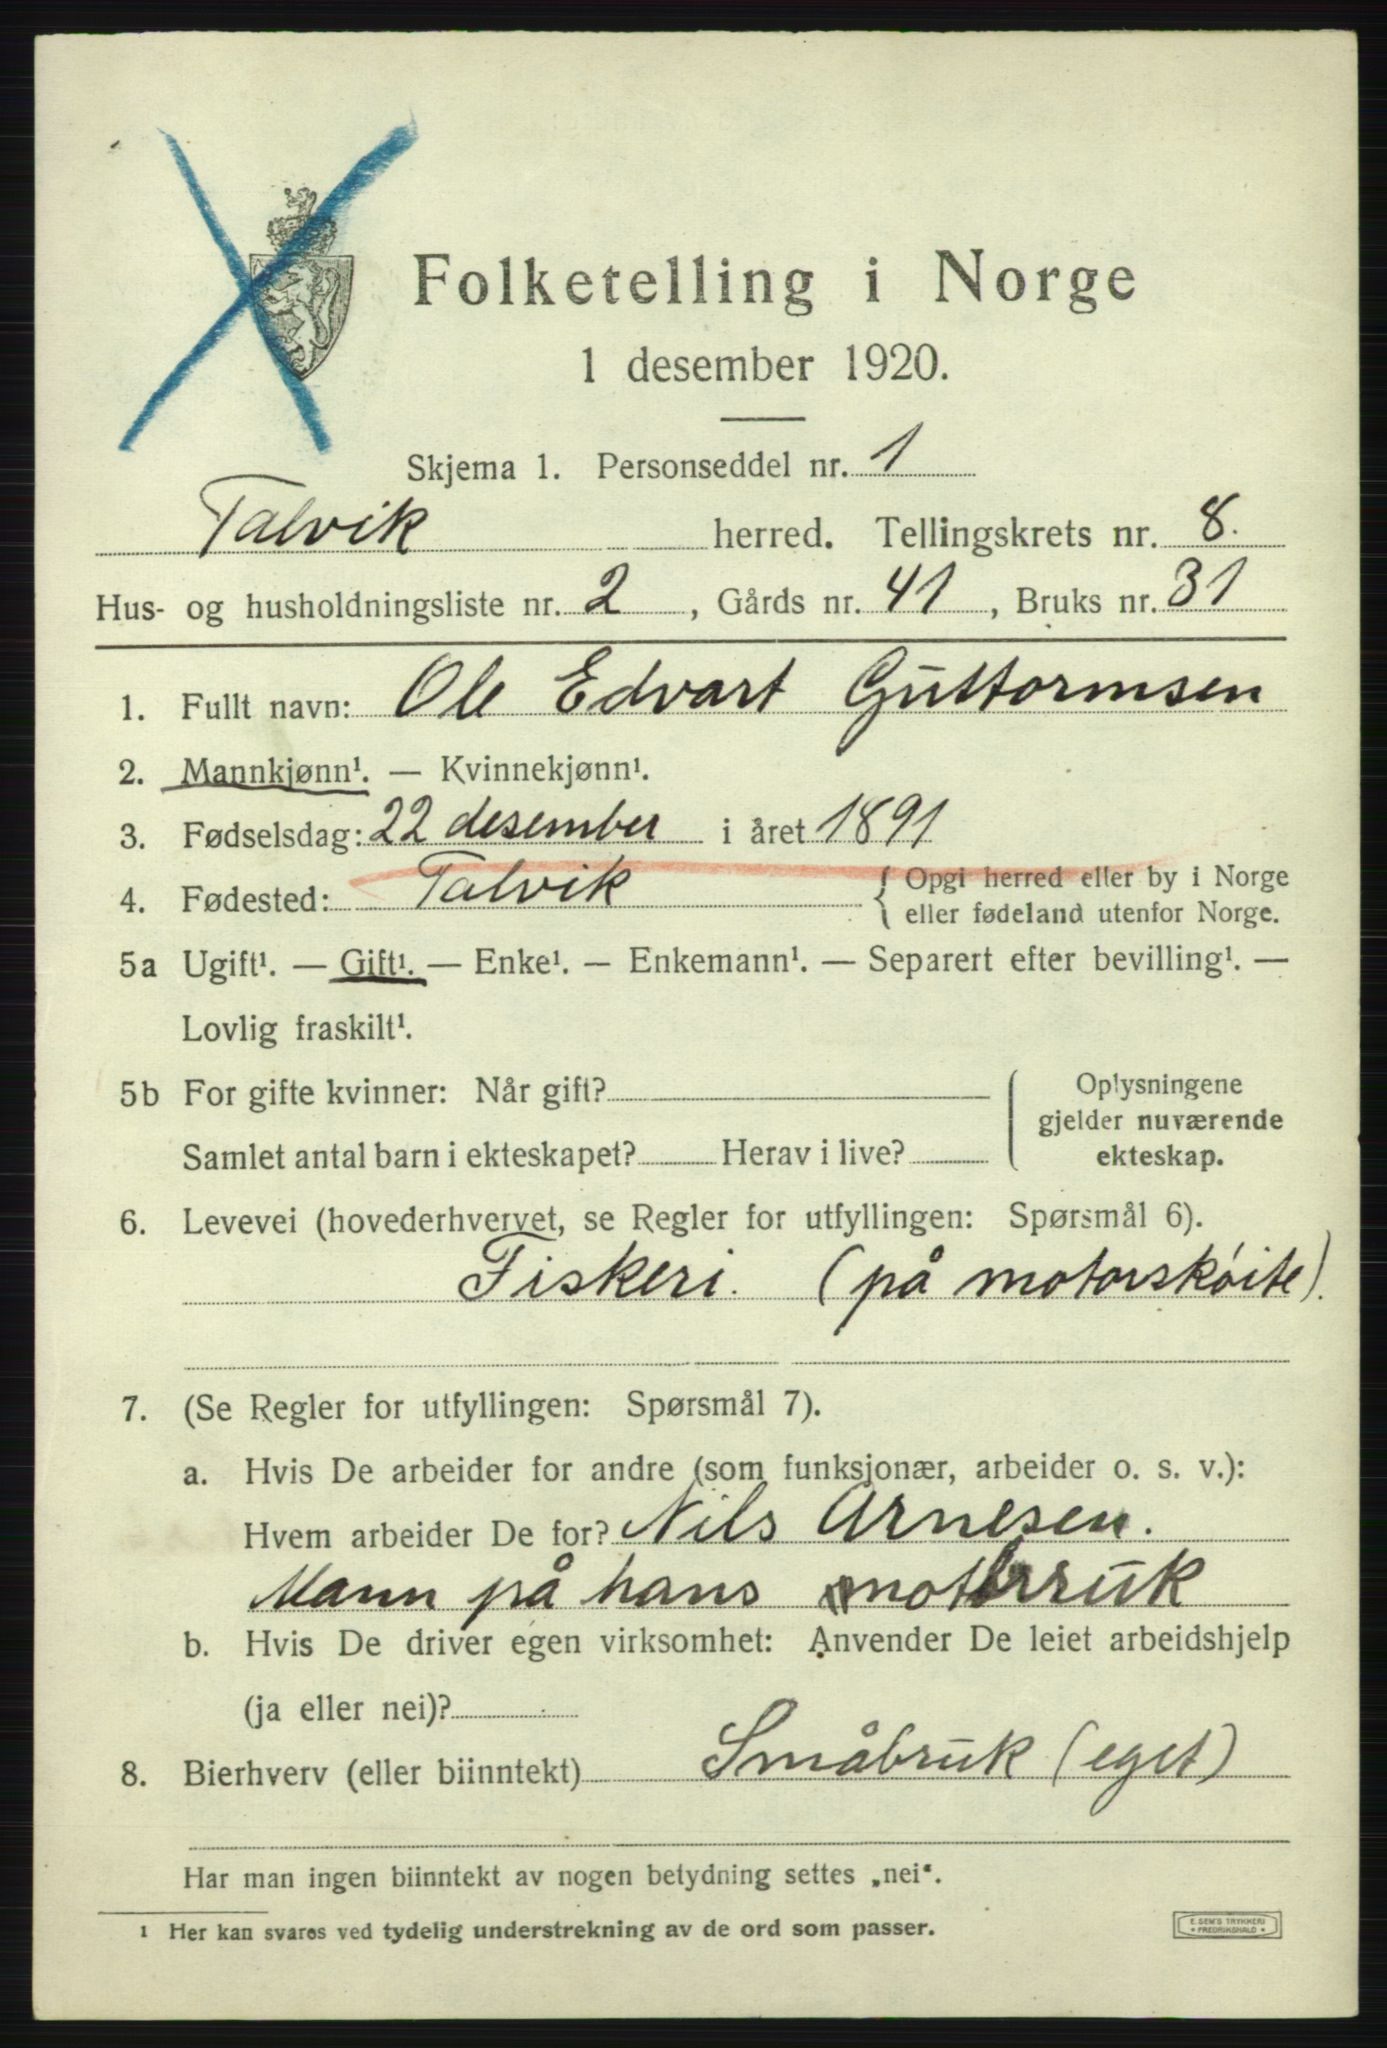 Folketelling i Norge
1 desember 1920.
Skjema 1. Personseddel nr. 1
Talvik herred. Tellingskrets nr. 8.
Hus- og husholdningsliste nr. 2, Gårds nr. 41, Bruks nr. 31
1. Fullt navn: Ole Edvart Guttormsen
2. Mannkjønn¹. — Kvinnekjønn¹.
3. Fødselsdag: 22 desember i året 1891
4. Fødested: Talvik { Opgi herred eller by i Norge
eller fødeland utenfor Norge.
5a Ugift¹. — Gift¹. — Enke¹. — Enkemann¹. — Separert efter bevilling¹. —
Lovlig fraskilt¹.
5b For gifte kvinner: Når gift?
Samlet antal barn i ekteskapet? Herav i live?
Oplysningene
gjelder nuværende
ekteskap.
6. Levevei (hovederhvervet, se Regler for utfyllingen: Spørsmål 6).
Fiskeri. (på motorskøite).
7. (Se Regler for utfyllingen: Spørsmål 7).
a. Hvis De arbeider for andre (som funksjonær, arbeider o. s. v.):
Hvem arbeider De for? Nils Arnesen.
Mann på hans
b. Hvis De driver egen virksomhet: Anvender De leiet arbeidshjelp
(ja eller nei)?
8. Bierhverv (eller biinntekt) Småbruk (eget)
Har man ingen biinntekt av nogen betydning settes „nei“.
¹ Her kan svares ved tydelig understrekning av de ord som passer.
E. SEM'S TRYKKERI
FREDRIKSHALD